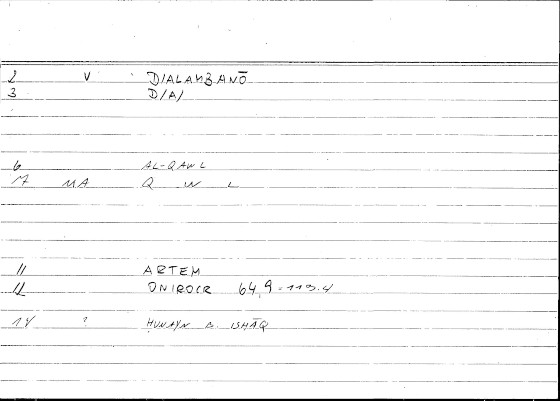 2 V DIALAMBANŌ
3 DIA/
6 AL-QAWL
17 MA Q W L
11 ARTEM
12 ONIROCR 64,9 = 119.4
14 ? ḤUNAYN B. ISḤĀQ